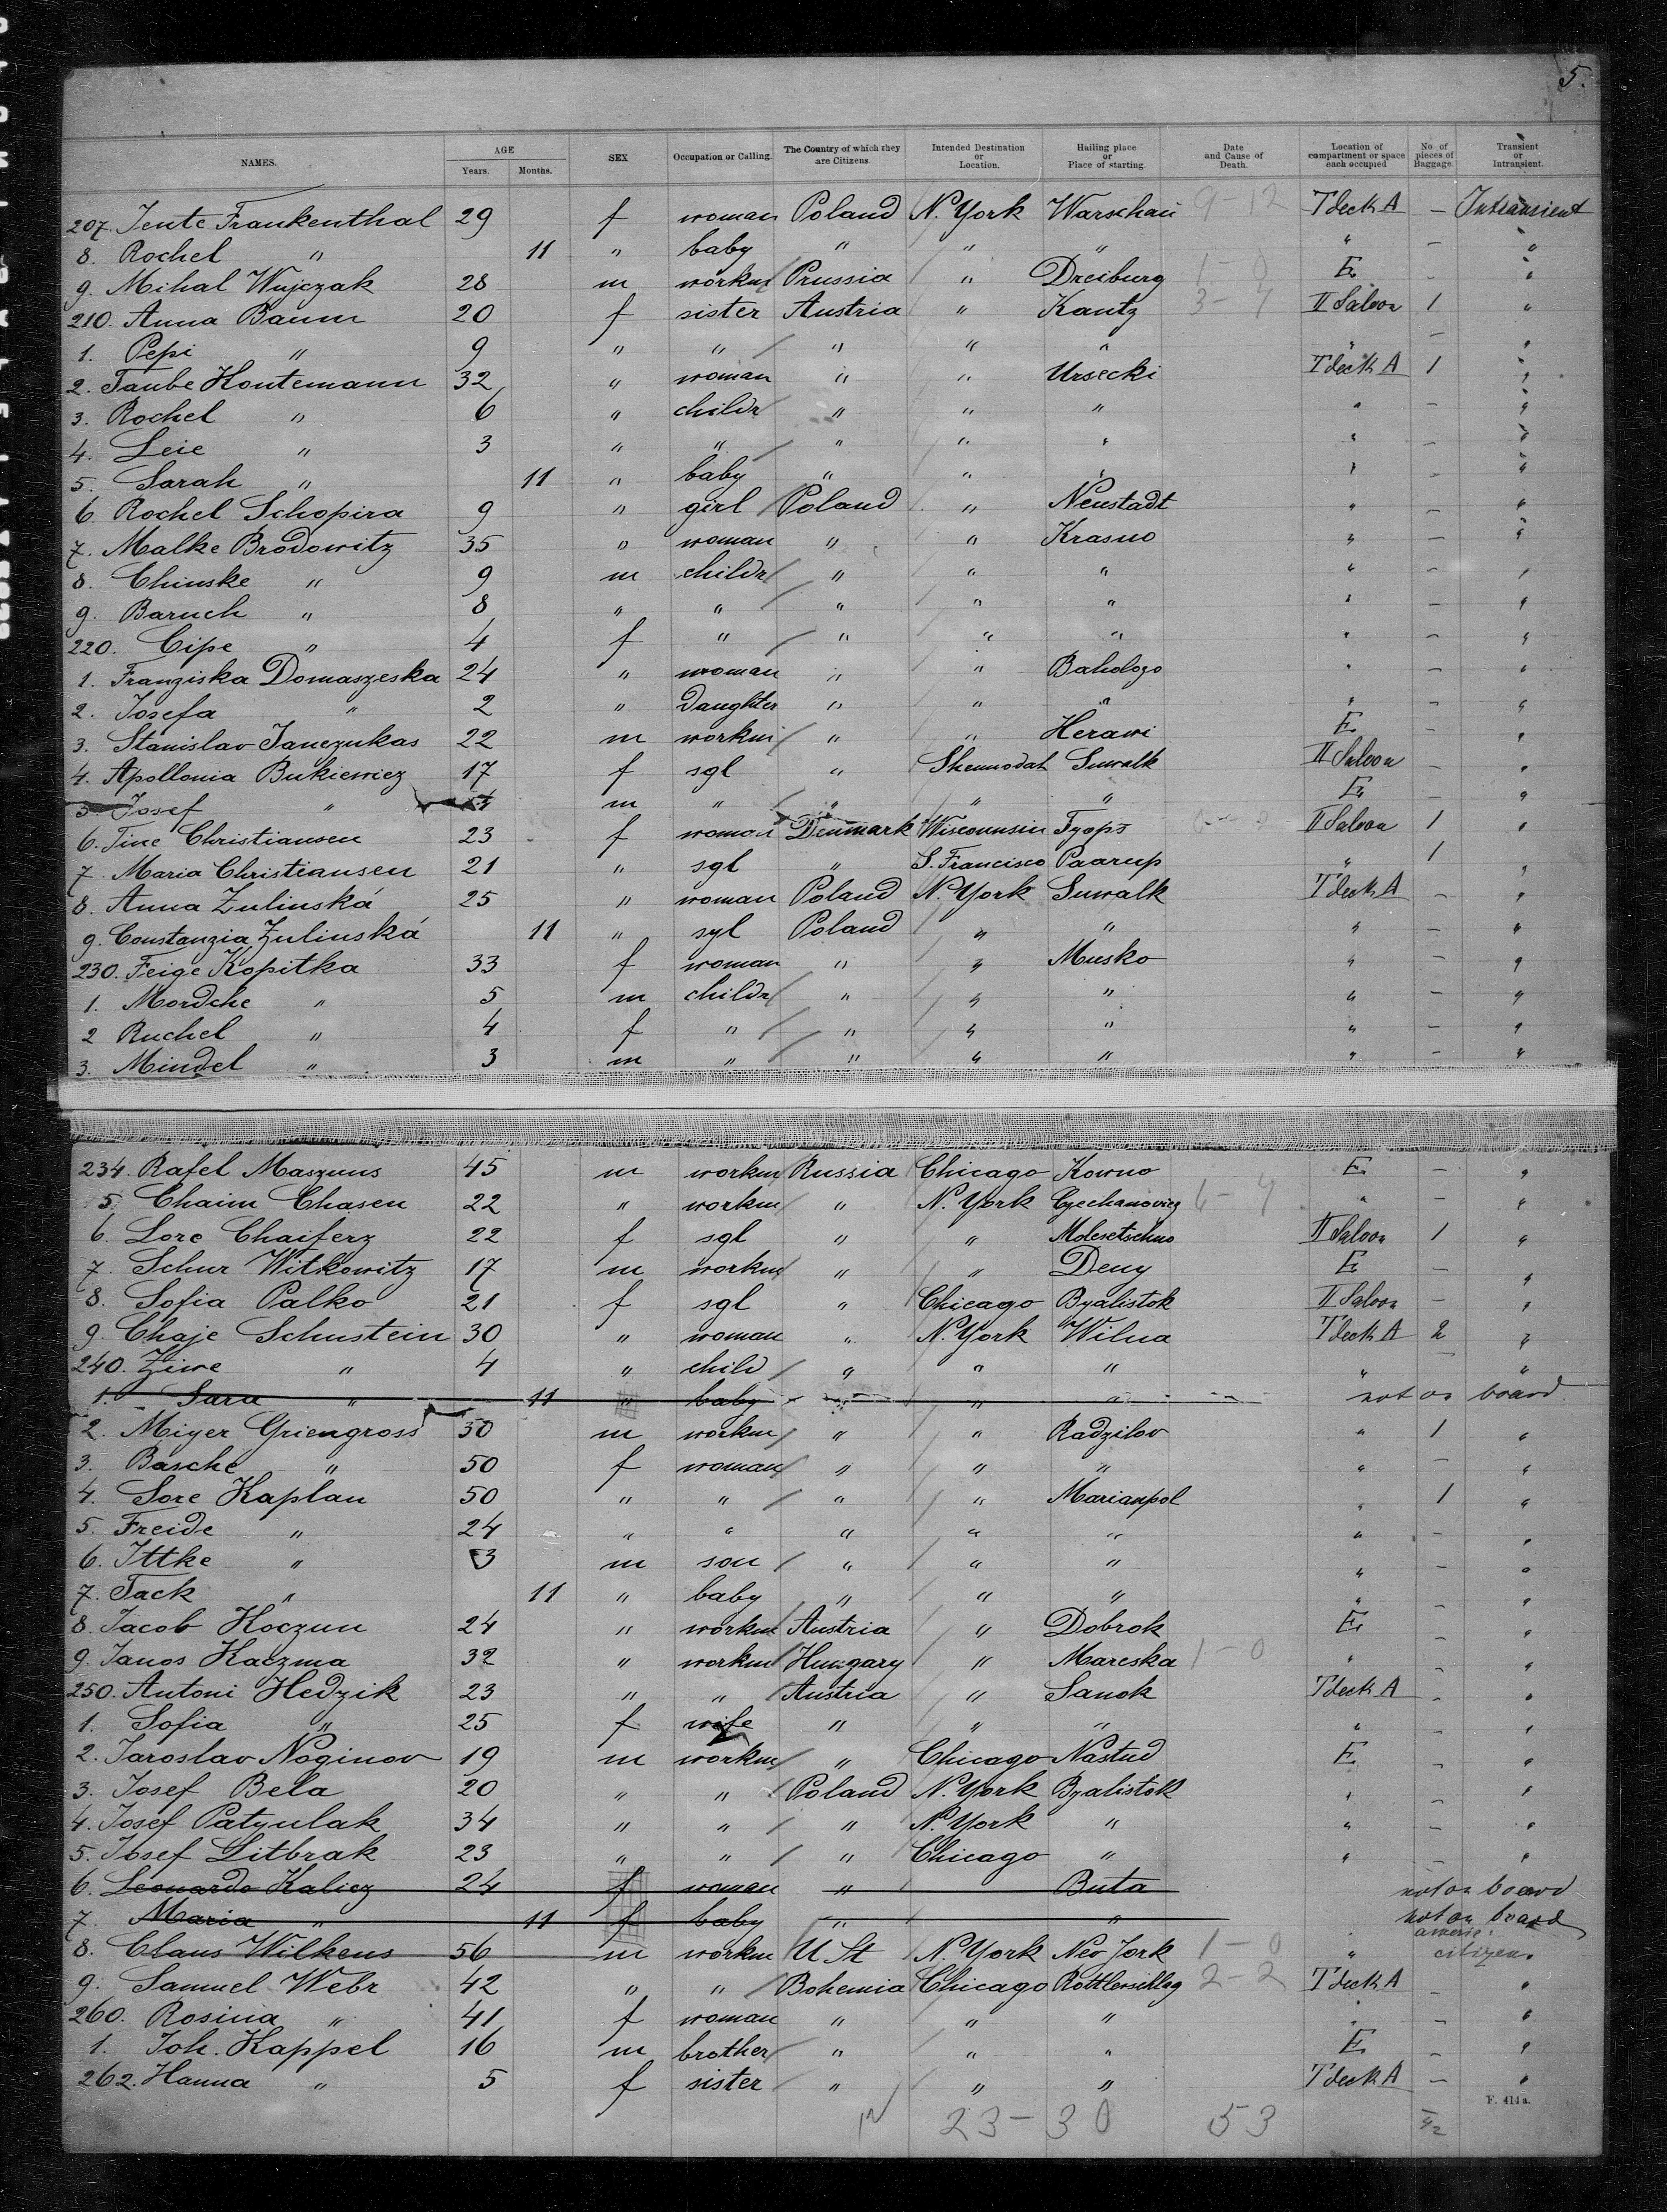 5.
NAMES. AGE Years. Months. SEX Occupation or Calling. The Country of which they are Citizens. Intended Destination or Location. Hailing place or Place of starting. Date and Cause of Death. Location of compartment or space each occupied No. of pieces of Baggage. Transient or Intransient.
207. Jente Frankenthal 29 f woman Poland N. York Warschau 9-12 T deck A — Intransient
8. Rochel " 11 " baby " " " " — "
9. Mihal Wujczak 28 m workm Prussia " Dreiburg 1-0 E. — "
210. Anna Baum 20 f sister Austria " Kantz 3-4 II Saloon 1 "
1. Pepi " 9 " " " " " " — "
2. Taube Hontemann 32 " woman " " Ursecki T deck A 1 "
3. Rochel " 6 " childr " " " " — "
4. Leie " 3 " " " " " " — "
5. Sarah " 11 " baby " " " " — "
6. Rochel Schopira 9 " girl Poland " Neustadt " — "
7. Malke Brodowitz 35 " woman " " Krasno " — "
8. Chinske " 9 m childr " " " " — "
9. Baruch " 8 " " " " " " — "
220. Cipe " 4 f " " " " " — "
1. Franziska Domaszeska 24 " woman " " Bahologo " — "
2. Josefa " 2 " daughter " " " " — "
3. Stanislav Janczukas 22 m workm " " Herawi E. — "
4. Apollonia Bukiewicz 17 f sgl " Shennodah Suwalk II Saloon — "
5. Josef " m " " " " E. — "
6. Tine Christiansen 23 f woman Denmark Wisconnsin Tyaps II Saloon 1 "
7. Maria Christiansen 21 " sgl " S. Francisco Paarup " 1 "
8. Anna Zulinská 25 " woman Poland N. York Suwalk T deck A — "
9. Constanzia Zulinská 11 " sgl Poland " " " — "
230. Feige Kopitka 33 f woman " " Musko " — "
1. Mordche " 5 m childr " " " " — "
2 Ruchel " 4 f " " " " " — "
3. Mindel " 3 m " " " " " — "
234. Rafel Maszuns 45 m workm Russia Chicago Kowno E. — "
5. Chaim Chasen 22 " workm " N. York Czechanovicz 6-4 " — "
6. Lore Chaiferz 22 f sgl " " Molesetschno II Saloon 1 "
7. Schur Witkowitz 17 m workm " " Deny E. — "
8. Sofia Palko 21 f sgl " Chicago Byalistok II Saloon — "
9. Chaje Schustein 30 " woman " N. York Wilna T deck A 2 "
240. Ziwe " 4 " child " " " " — "
1. Sara " 11 " baby " " " not on board
2. Miyer Griengross 50 m workm " " Radzilov " 1 "
3. Basche " 50 f woman " " " " — "
4. Sore Kaplan 50 " " " " Marianpol " 1 "
5. Freide " 24 " " " " " " — "
6. Ittke " 3 m son " " " " — "
7. Tack " 11 " baby " " " " — "
8. Jacob Koczun 24 " workm Austria " Dobrok E. — "
9. Janos Kaczma 32 " workm Hungary " Mareska 1-0 " — "
250. Antoni Hedzik 23 " " Austria " Sanok T deck A — "
1. Sofia " 25 f wife " " " " — "
2. Jaroslav Noginov 19 m workm " Chicago Nastud E. — "
3. Josef Bela 20 " " Poland N. York Byalistok " — "
4. Josef Patynlak 34 " " " N. York " " — "
5. Josef Litbrak 23 " " " Chicago " " — "
6. Leonardo Kalicz 24 f woman " Buta not on board
7. Maria " 11 f baby " " not on board
8. Claus Wilkens 56 m workm U St N. York Nev Jork 1-0 " americ. citizen.
9. Samuel Webr 42 " " Bohemia Chicago Rothlerschlag 2-2 T deck A — "
260. Rosina " 41 f woman " " " " — "
1. Joh. Kappel 16 m brother " " " E. — "
262. Hanna " 5 f sister " " " T deck A — "
F. 414a.
23-30 53